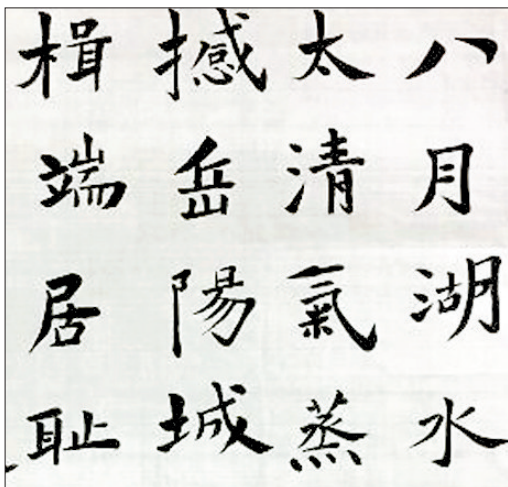 八月湖水
太清氣蒸
撼岳陽城
楫端居恥